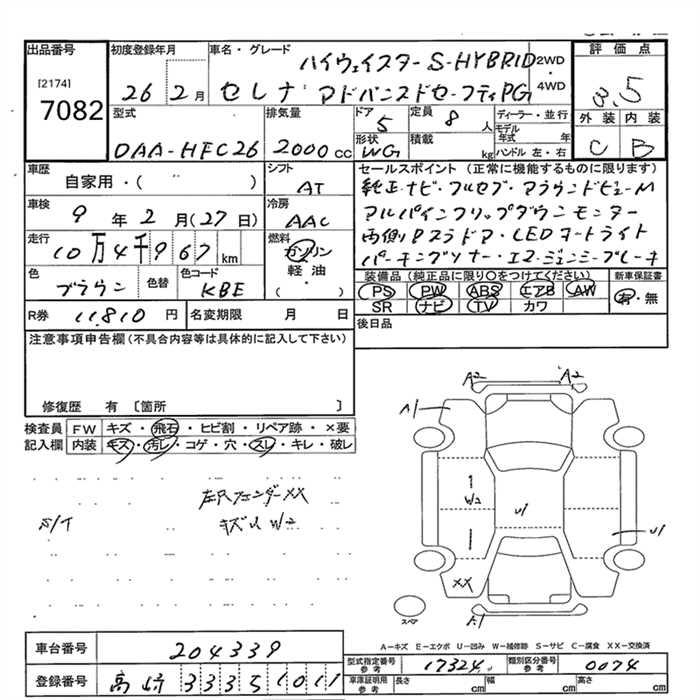 出品番号
[2174]
7082
初度登録年月
26年 2月
車名・グレード
ハイウェイスターS-HYBRID
セレナ アドバンスドセーフティPG
2WD・4WD
評価点
3.5
外装 内装
C B
型式
DAA-HFC26
排気量
2000cc
ドア
5
形状
WG
定員
8人
積載
kg
ディーラー・並行
モデル年式 年
ハンドル 左・右
車歴
自家用・( )
シフト
AT
車検
9年2月(27日)
冷房
AAC
走行
10万4千967km
燃料
ガソリン
軽油・
( )
色
ブラウン
色替
色コード
KBE
セールスポイント(正常に機能するものに限ります)
純正ナビ・フルセグ・アラウンドビューM
アルパインフリップダウンモニター
両側Pスラドア・LEDオートライト
パーキングソナー・エマージェンシーブレーキ
装備品(純正品に限り○をつけてください)
新車保証書
PS PW ABS エアB AW
SR ナビ TV カワ
有・無
R券 11,810円
名変期限 月 日
後日品
注意事項申告欄(不具合内容等は具体的に記入して下さい)
修復歴 有 〔箇所 〕
検査員記入欄
FW キズ・飛石・ヒビ割・リペア跡・×要
内装 キズ・汚レ・コゲ・穴・スレ・キレ・破レ
左Rフェンダー XX
キズU W2
A2 A2
A1
W2
U1
U1
XX
A1
スペア
A-キズ E-エクボ U-凹み W-補修跡 S-サビ C-腐食 XX-交換済
車台番号 204339
登録番号 高崎 333 5 1011
型式指定番号 参考 17324
類別区分番号 参考 0074
車庫証明用 参考 長さ cm 幅 cm 高さ cm